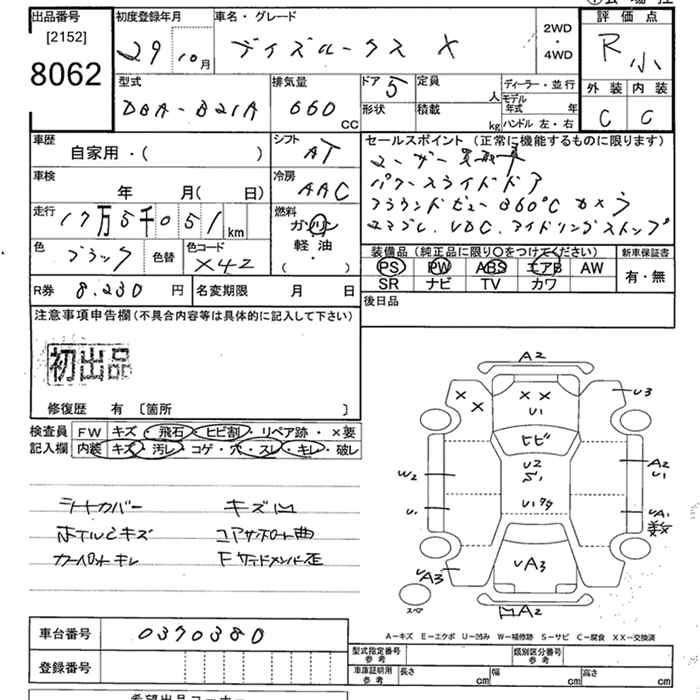 出品番号
[2152]
8062
初度登録年月
29 10月
車名・グレード
デイズルークス X
2WD
・
4WD
評価点
R 小
外装 内装
C C
型式
DBA-B21A
排気量
660 CC
ドア 5
形状
定員 人
積載 kg
ディーラー・並行
モデル年式 年
ハンドル 左・右
車歴
自家用・( )
シフト
AT
車検
年 月( 日)
冷房
AAC
走行
17万5千051 km
燃料
ガソリン
軽油
・
( )
色
ブラック
色替
色コード
X42
セールスポイント (正常に機能するものに限ります)
ユーザー買取車
パワースライドドア
アラウンドビュー360℃カメラ
エマブレ. VDC. アイドリングストップ
装備品 (純正品に限り〇をつけてください)
PS PW ABS エアB AW
SR ナビ TV カワ
新車保証書
有・無
R券 8.230 円
名変期限 月 日
後日品
注意事項申告欄 (不具合内容等は具体的に記入して下さい)
初出品
修復歴 有 〔箇所 〕
検査員
記入欄
FW キズ・飛石・ヒビ割・リペア跡・×要
内装 キズ・汚レ・コゲ・穴・スレ・キレ・破レ
シートカバー キズ凹
ホイルCキズ コアサポート曲
カーペットキレ Fサイドメンバー歪
A2
U3
U1
ヒビ
U2
S1
A2
U1
W2
U1
U1多
UA1
数
UA3
UA3
凹A2
スペア
A-キズ E-エクボ U-凹み W-補修跡 S-サビ C-腐食 XX-交換済
車台番号 0370380
登録番号
型式指定番号
参考
類別区分番号
参考
車庫証明用
参考
長さ cm
幅 cm
高さ cm
希望出品コーナー